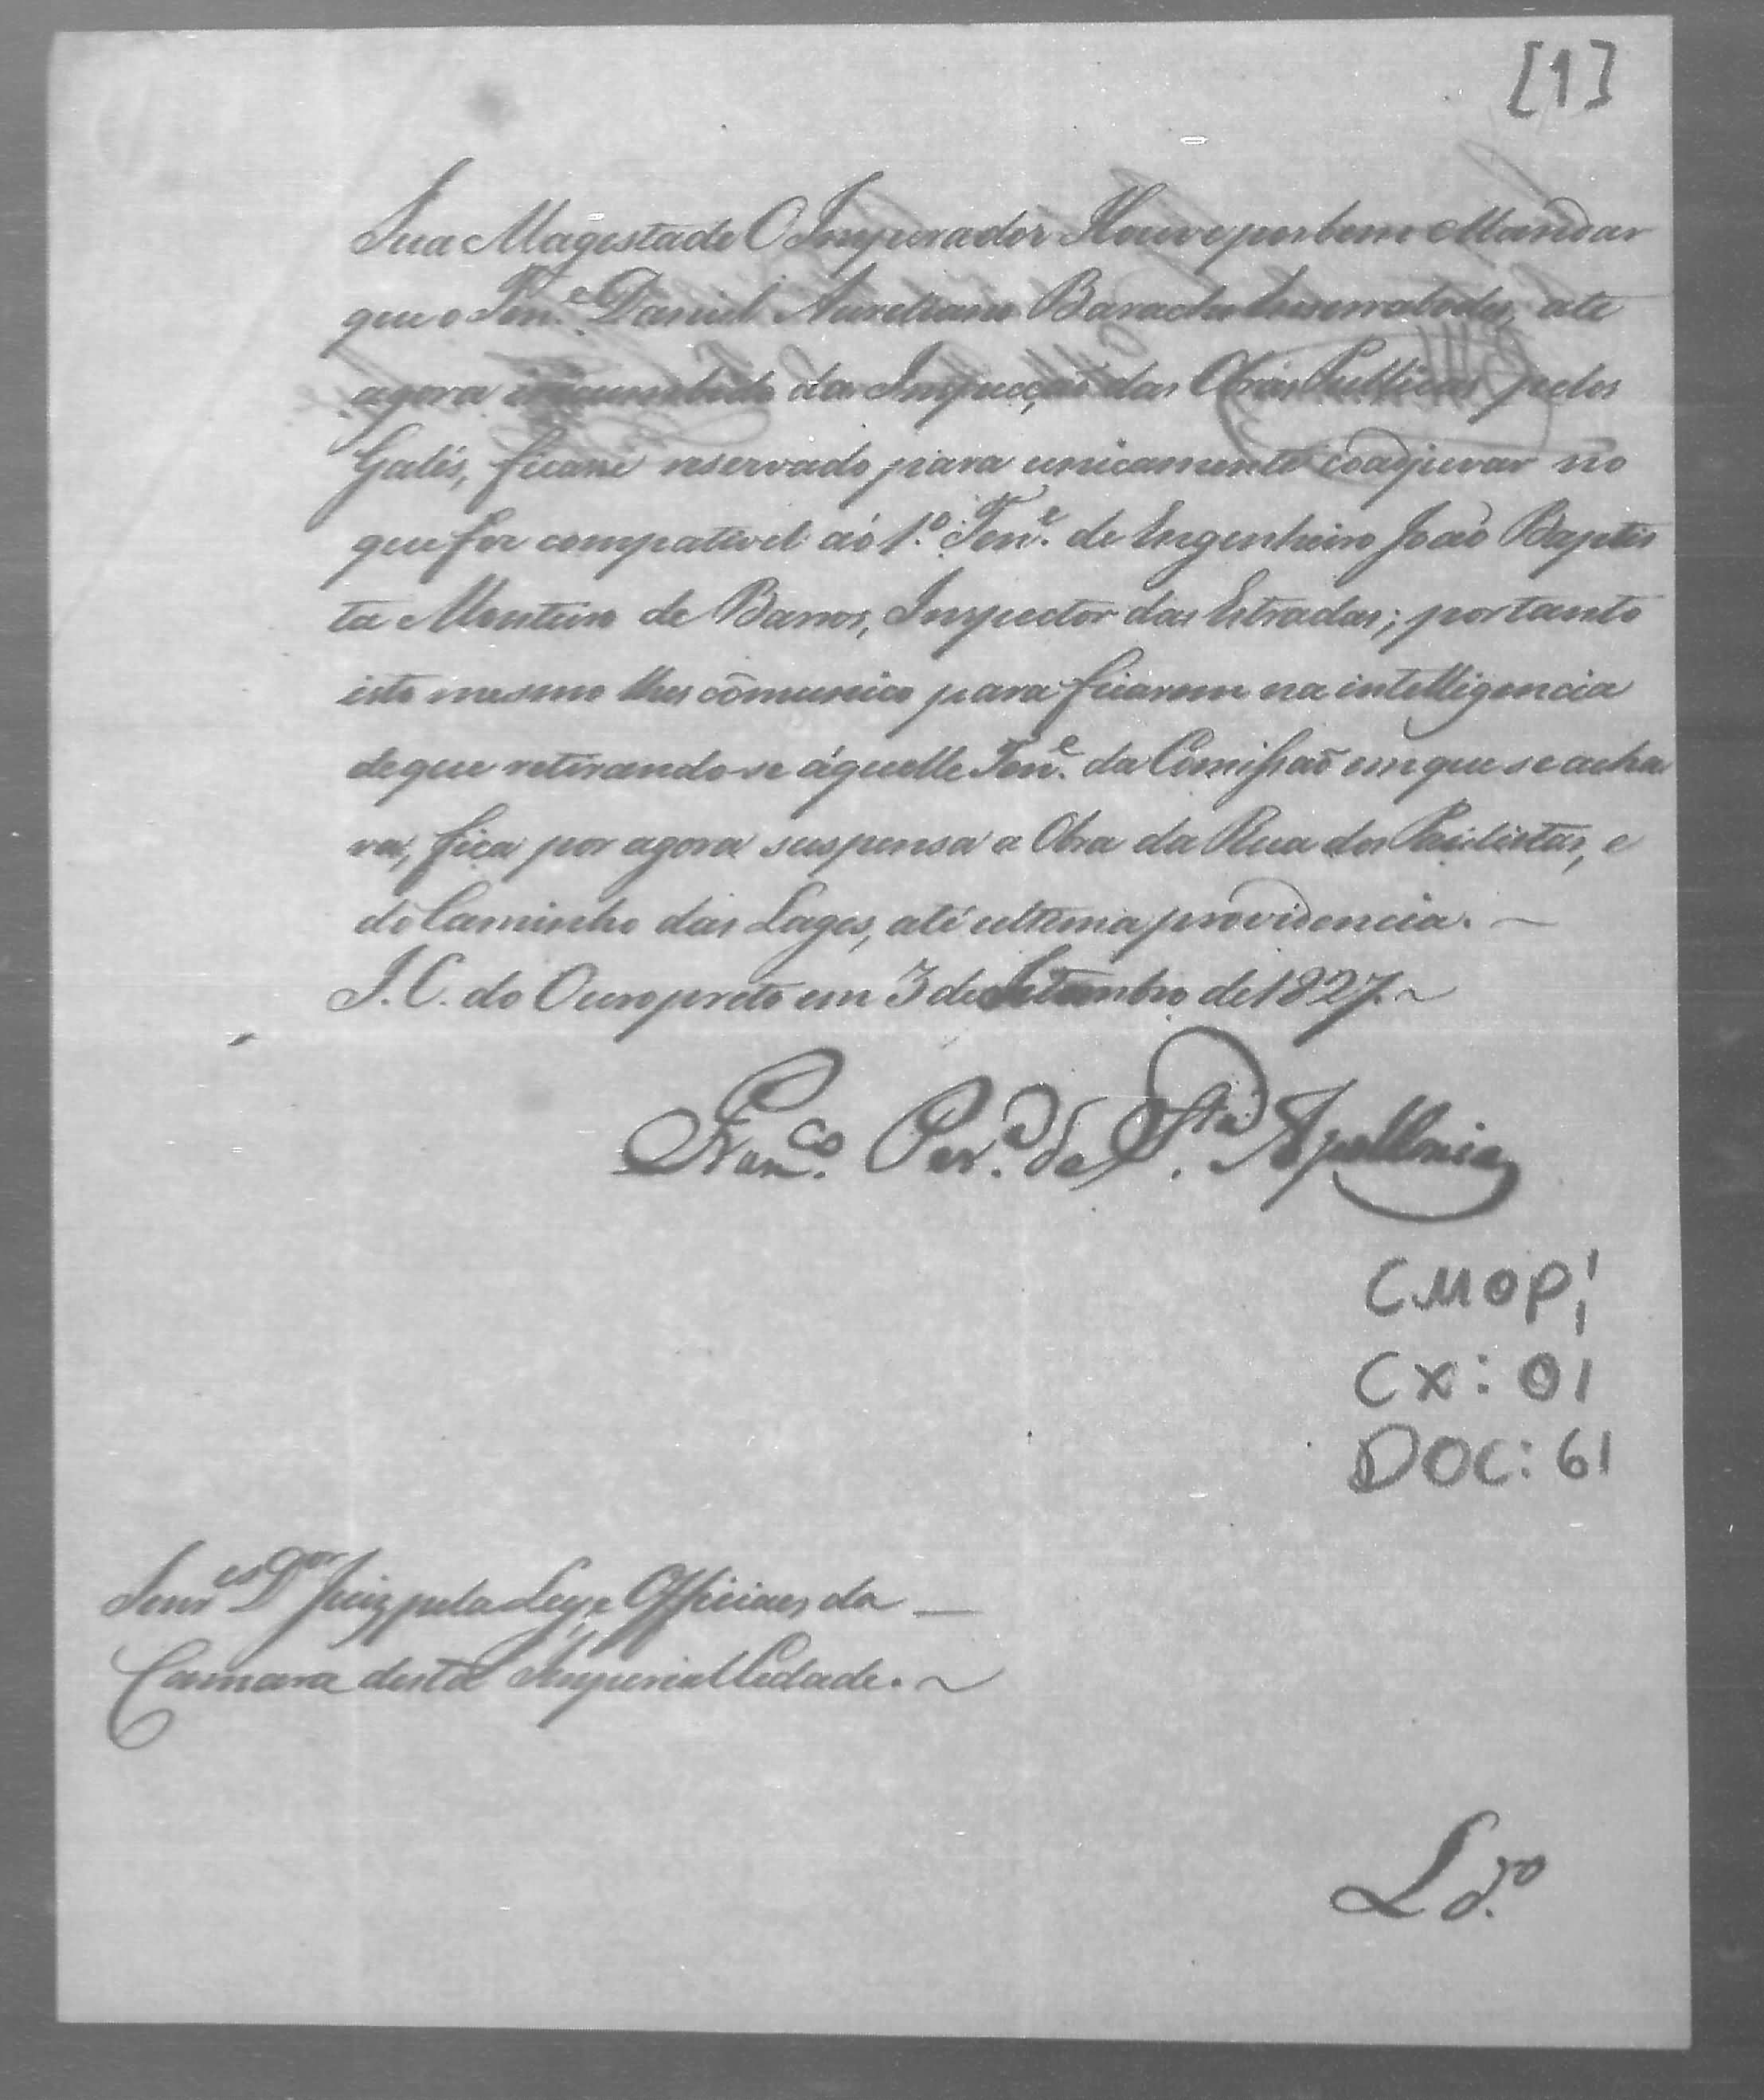 [1]
Sua Magestade O Imperador Houve por bem Mandar
que o Ten.e Daniel Aureliano Baracho ate
agora encumbido da Inspecção das Obras Publicas pelos
Galés, ficasse reservado para unicamente coadjuvar no
que for compativel ao 1.o Ten.e de Engenheiro João Baptis
ta Monteiro de Barros, Inspector das Estradas; portanto
isto mesmo lhes comunico para ficarem na intelligencia
de que retirando-se áquelle Ten.e da Comissaõ em que se acha
va, fica por agora suspensa a Obra da Rua dos Paulistas, e
do Caminho das Lages, até ultima providencia. ~
I. C. do Ouro preto em 3 de Setembro de 1827. ~
Fran.co Per.a de S.ta Apollonia
CMOP;
CX: 01
DOC: 61
Senr.es D.or Juiz pela Ley, e Officiaes da —
Camara desta Imperial Cidade. ~
L.do